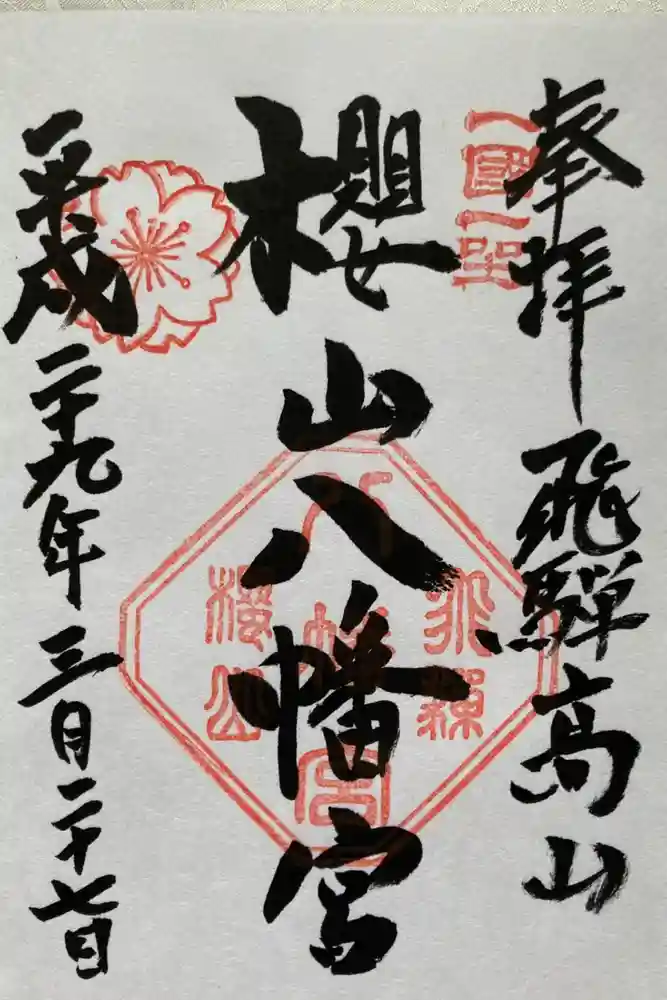 奉拝 飛騨高山
一國一社
櫻山八幡宮
飛騨
八幡宮
櫻山
平成二十九年三月二十七日